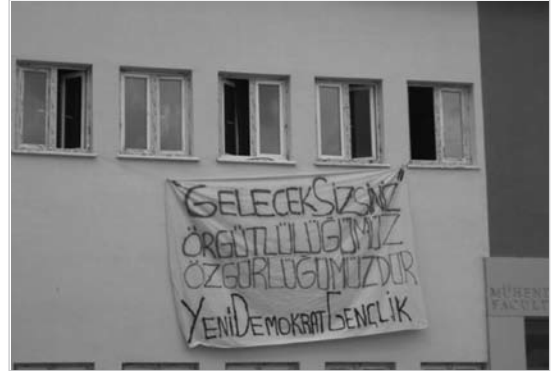 GELECEK SİZSİNİZ
ÖRGÜTLÜLÜĞÜMÜZ
ÖZGÜRLÜĞÜMÜZDÜR
YENİ DEMOKRAT GENÇLİK